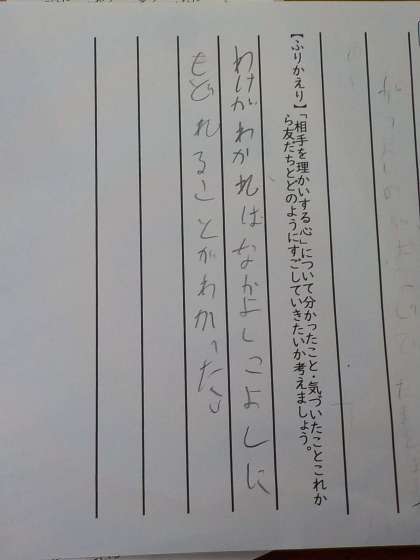 【ふりかえり】「相手を理かいする心」について分かったこと・気づいたことこれか
ら友だちとどのようにすごしていきたいか考えましょう。
わけがわかればなかよしこよしに
もどれることがわかった。